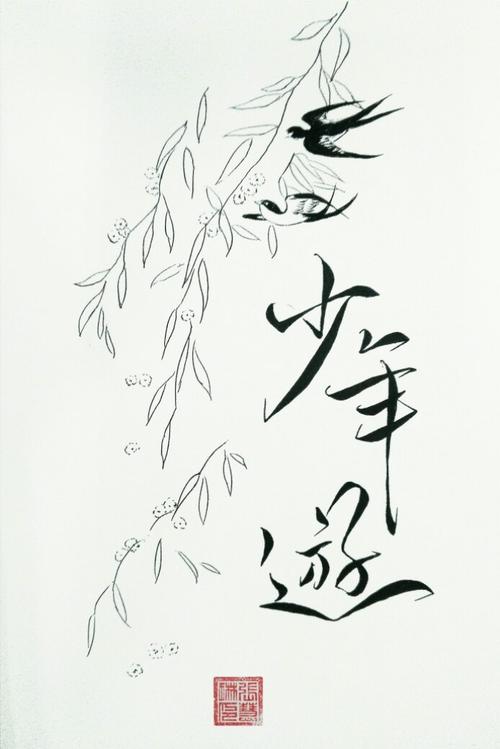 少年遊